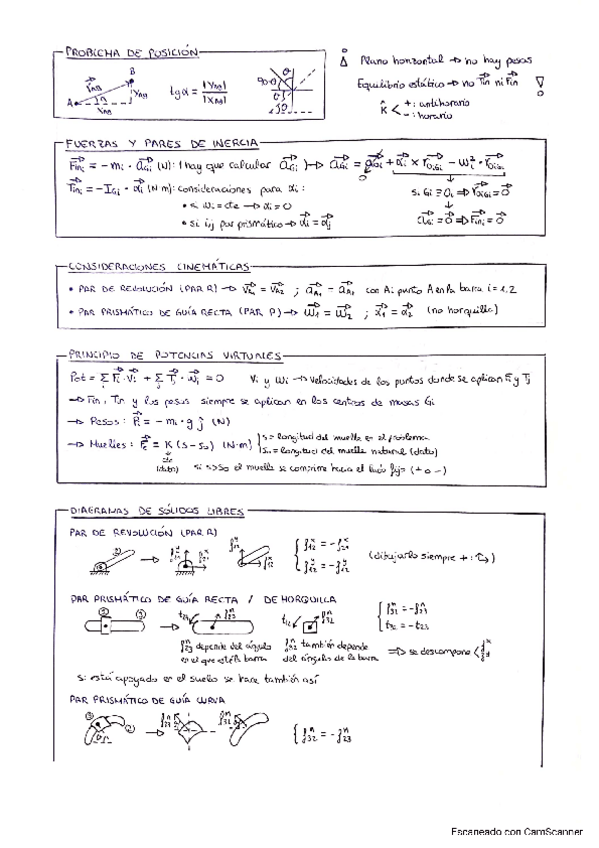 PROBICHA DE POSICIÓN
B
A
tg α = |Y_AB| / |X_AB|
Plano horizontal → no hay pesos
Equilibrio estático → no Tin ni Fin
k̂ < + : antihorario
- : horario
FUERZAS Y PARES DE INERCIA
Fin_i = - m_i · a_Gi (N): (hay que calcular a_Gi) → a_Gi = a_Oi + α_i × r_OiGi - w_i² · r_OiGi
Tin_i = - I_Gi · α_i (N m): consideraciones para α_i:
• si w_i = cte → α_i = 0
• si i,j par prismático → α_i = α_j
si Gi ≡ Oi ⇒ r_OiGi = 0
a_Gi = 0 ⇒ Fin_i = 0
CONSIDERACIONES CINEMÁTICAS
• PAR DE REVOLUCIÓN (PAR R) → V_A1 = V_A2 ; a_A1 = a_A2 con Ai punto A en la barra i = 1,2
• PAR PRISMÁTICO DE GUÍA RECTA (PAR P) → w_1 = w_2 ; α_1 = α_2 (no horquilla)
PRINCIPIO DE POTENCIAS VIRTUALES
Pot = Σ F_i · V_i + Σ T_j · w_j = 0 Vi y Wi → velocidades de los puntos donde se aplican Fi y Tj
→ Fin, Tin y los pesos siempre se aplican en los centros de masas Gi
→ Pesos: P_i = - m_i · g ĵ (N)
→ Muelles: F_e = K (s - s₀) (N·m) { s = longitud del muelle en el problema
s₀ = longitud del muelle natural (dato)
cte
(dato)
si s>so el muelle se comprime hacia el lado fijo (+ o -)
DIAGRAMAS DE SÓLIDOS LIBRES
PAR DE REVOLUCIÓN (PAR R)
{ f12^x = - f21^x
f12^y = - f21^y
(dibujarlo siempre + : )
PAR PRISMÁTICO DE GUÍA RECTA / DE HORQUILLA
{ f32^n = - f23^n
t32 = - t23
f23^n depende del ángulo en el que está la barra
f32^n también depende del ángulo de la barra
⇒ se descompone < f^x f^y
si está apoyado en el suelo se hace también así
PAR PRISMÁTICO DE GUÍA CURVA
{ f32^n = - f23^n
Escaneado con CamScanner